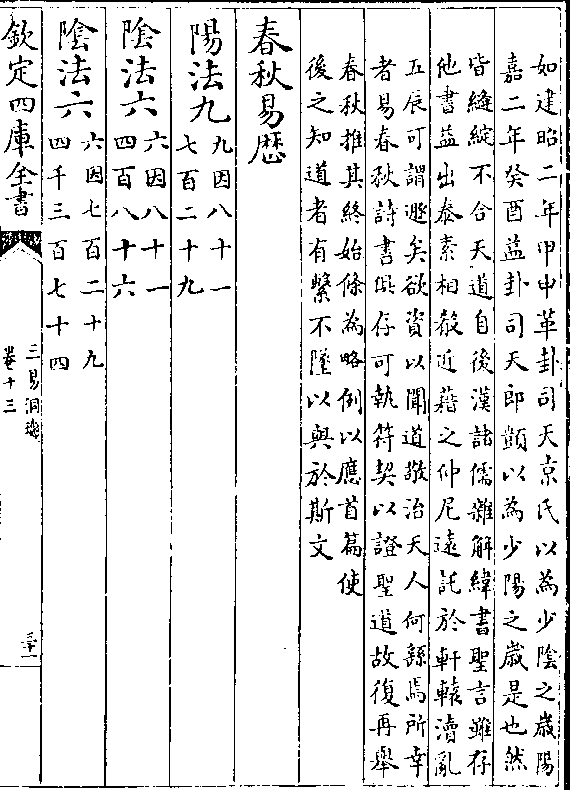 如建昭二年甲申革卦司天京氏以為少陰之歲陽
嘉二年癸酉益卦司天郎顗以為少陽之歲是也然
皆縫綻不合天道自後漢諸儒雜解緯書聖言雖存
他書益出泰素相殽近藉之仲尼遠託於軒轅瀆亂
五辰可謂遯矣欲資以聞道敬治天人何繇焉所幸
者易春秋詩書㒷存可執符契以證聖道故復再舉
春秋推其終始條為略例以應首篇使
後之知道者有繫不墜以與於斯文
春秋易歴
陽法九
九因八十一
七百二十九
陰法六
六因八十一
四百八十六
陰法六
六因七百二十九
四千三百七十四
欽定四庫全書
三易洞璣
卷十三